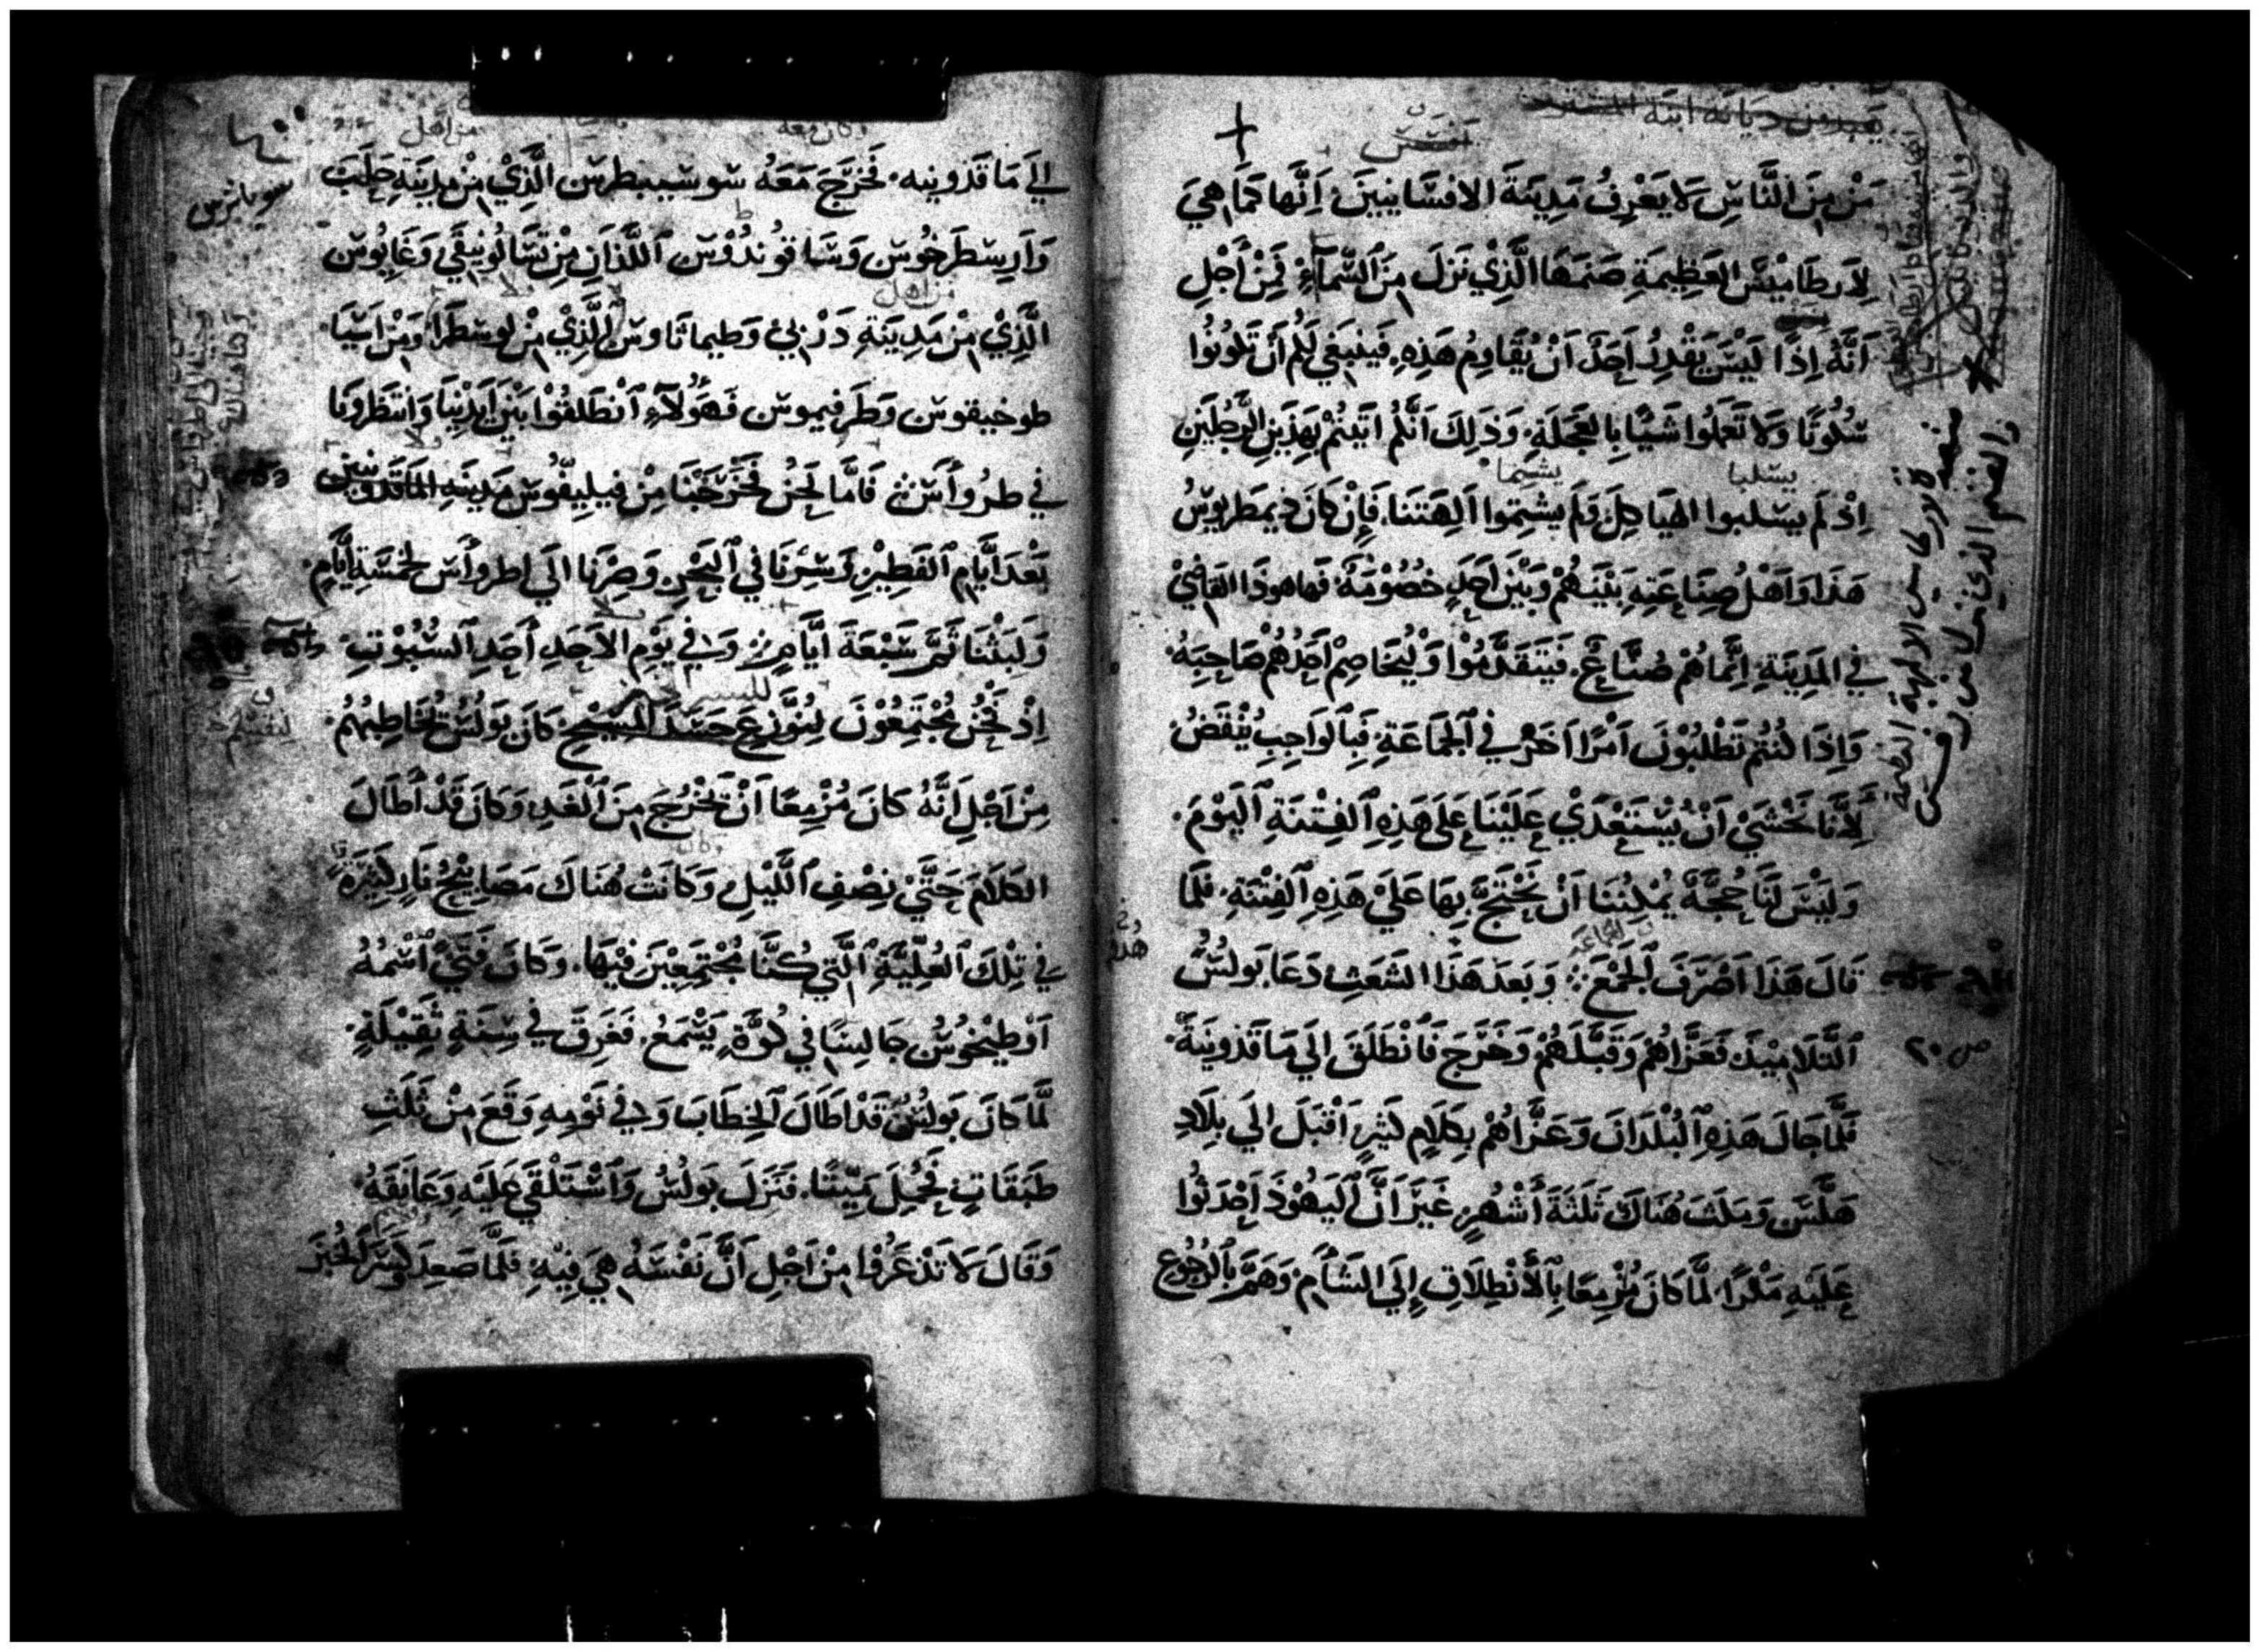 مَنْ مِنَ النَّاسِ لَا يَعْرِفُ مَدِينَةَ الافسَانِيين اَنَّها كَمَا هِيَ
لِاَرطَامِيْسَ العَظِيمَةِ صَنَمَهَا الَّذِيْ نَزَلَ مِنَ ٱلسَّمَآءِ فَمِنْ أَجْلِ
اَنَّهُ اِذًا لَيْسَ يَقْدِرُ اَحَدٌ اَنْ يُقَاوِمُ هَذِهِ فَيَنْبَغِي لَكُم اَنْ تَكُونُوا
سُكُوتًا وَلَا تَعْمَلُوا شَيًا بِالعَجَلَةِ وَذَلِكَ اَنَّكُم اَتَيْتُمْ بِهَذَينِ الرَّجُلَيْنِ
اِذْ لَم يسلبوا الهيَاكِلَ وَلَم يشتِموا آلِهَتَنَا فَاِنْ كَانَ ديمَطريُوسُ
هَذَا وَاَهْلُ صِنَاعَتِهِ بَيْنَهُمْ وَبَيْنَ اَحَدٍ خُصُوْمَةٌ فَهَا هوذَا القَاضِيْ
فِي المَدِينَةِ اِنَّمَا هُمْ صُنَّاعٌ فَيَتَقَدَّمُوْا وَلْيُخَاصِمْ اَحَدُهُمْ صَاحِبَهُ
وَاِذَا كُنتُم تَطْلُبُوْنَ اَمْرًا آخَرَ فِي ٱلجَمَاعَةِ فَبِٱلوَاجِبِ يُنْقَضُ
لِاَنَّا نَخْشَيْ اَنْ يُسْتَعْدَيْ عَلَيْنَا عَلَى هَذِهِ ٱلفِتْنَةِ ٱليَوْمَ
وَلَيْسَ لَنَا حُجَّةٌ يُمْكِنُنَا اَنْ نَحْتَجَّ بِهَا عَلَيْ هَذِهِ ٱلفِتْنَةِ فَلَمَّا
قَالَ هَذَا اَصْرَفَ ٱلجَمْعَ وَبَعدَ هَذَا الشَعَثِ دَعَا بَولُسُ
ٱلتَّلَامِيْذَ فَعَزَّاهُمْ وَقَبَّلَهُمْ وَخَرَجَ فَٱنْطَلَقَ اِلَي مَاقَدُونِيَةَ
فَلَمَّا جَالَ هَذِهِ ٱلبُلْدَانَ وَعَزَّاهُمْ بِكَلَامٍ كَثِيرٍ اَقْبَلَ الَي بِلَادِ
هَلَّسَ وَمَكَثَ هُنَاكَ ثَلَثَةَ اَشْهُرٍ غَيْرَ اَنَّ ٱليَهُوْدَ اَحْدَثُوا
عَلَيهِ مَكْرًا لَمَّا كَانَ مُزْمِعًا بِٱلاَنْطِلَاقِ اِلَي الشَاْم وَهَمَّ بِالرُجُوْعِ
الي مَاقَدُونيه فَخَرَجَ مَعَهُ سوسيبطرس الَّذِيْ مِنْ مدِينَةِ حَلَبَ
وَاَرِسْطَرخُوس وَسَاقوندُوْس ٱللَّذَانِ مِنْ تَسَالُونِيقَي وَغَايُوس
الَّذِيْ مِنْ مَدِيْنَةِ دَرْبي وَطيماثَاوس الَّذِيْ مِنْ لوسطَرَا وَمِنْ اَسِيَا
طوخيقوس وَطَرفيموس فَهَؤُلَآءِ ٱنْطَلَقُوْا بَيْنَ اَيْدِيْنَا وَانْتَظَرونَا
في طرُوَاسَ فَامَّا نَحْنُ فَخَرَجْنَا مِنْ فيليفُوسَ مَدِيْنَةِ المَاقَدُونِيين
بَعْدَ اَيَّامِ ٱلفَطِيْرِ وَسِرْنَا فِي ٱلبَحْرِ وَصِرْنَا اِلَي اطروَاس لِخَمْسَةِ اَيَّامٍ
وَلَبِثْنَا ثَمَّ سَبْعَةَ اَيَّامٍ وَفِي يَوْمِ الاَحَدِ اَحَدِ ٱلسُبُوْتِ
اِذْ نَحْنُ مُجْتَمِعُوْنَ لِنُوَزِّعَ جَسَدَ المَسِيْحِ كَانَ بَولُسُ يُخَاطِبُهُمْ
مِنْ اَجْلِ اَنَّهُ كَانَ مُزْمِعًا اَنْ يَخْرُجَ مِنَ ٱلْغَدِ وَكَانَ قَدْ اَطَالَ
الكَلَامَ حَتَّيْ نِصْفِ ٱللَّيْلِ وَكَانَتْ هُنَاكَ مَصَابِيْحُ نَارٍ كَثِيْرَةٌ
فِي تِلْكَ ٱلعُلِّيَّةِ ٱلَّتِي كُنَّا مُجْتَمِعِيْنَ فِيْهَا وَكَانَ فَتًيْ ٱسْمُهُ
اَوْطِيْخُوُسُ جَالِسًا فِي كُوَّةٍ يَسْمَعُ فَغَرِقَ فِي سِنَةٍ ثَقِيْلَةٍ
لَمَّا كَانَ بَولُسُ قَدْ اَطَالَ ٱلخِطَابَ وَفي نَوْمِهِ وَقَعَ مِنْ ثَلَثِ
طَبَقَاتٍ فَحُمِلَ مَيِّتًا فَنَزَلَ بَولُسُ وَٱسْتَلْقَي عَلَيْهِ وَعَانَقَهُ
وَقَالَ لَا تَذْعَرُوْا مِنْ اَجْلِ اَنَّ نَفْسَهُ هِيَ فِيْهِ فَلَمَّا صَعِدَ كَسَرَ الخُبْزَ